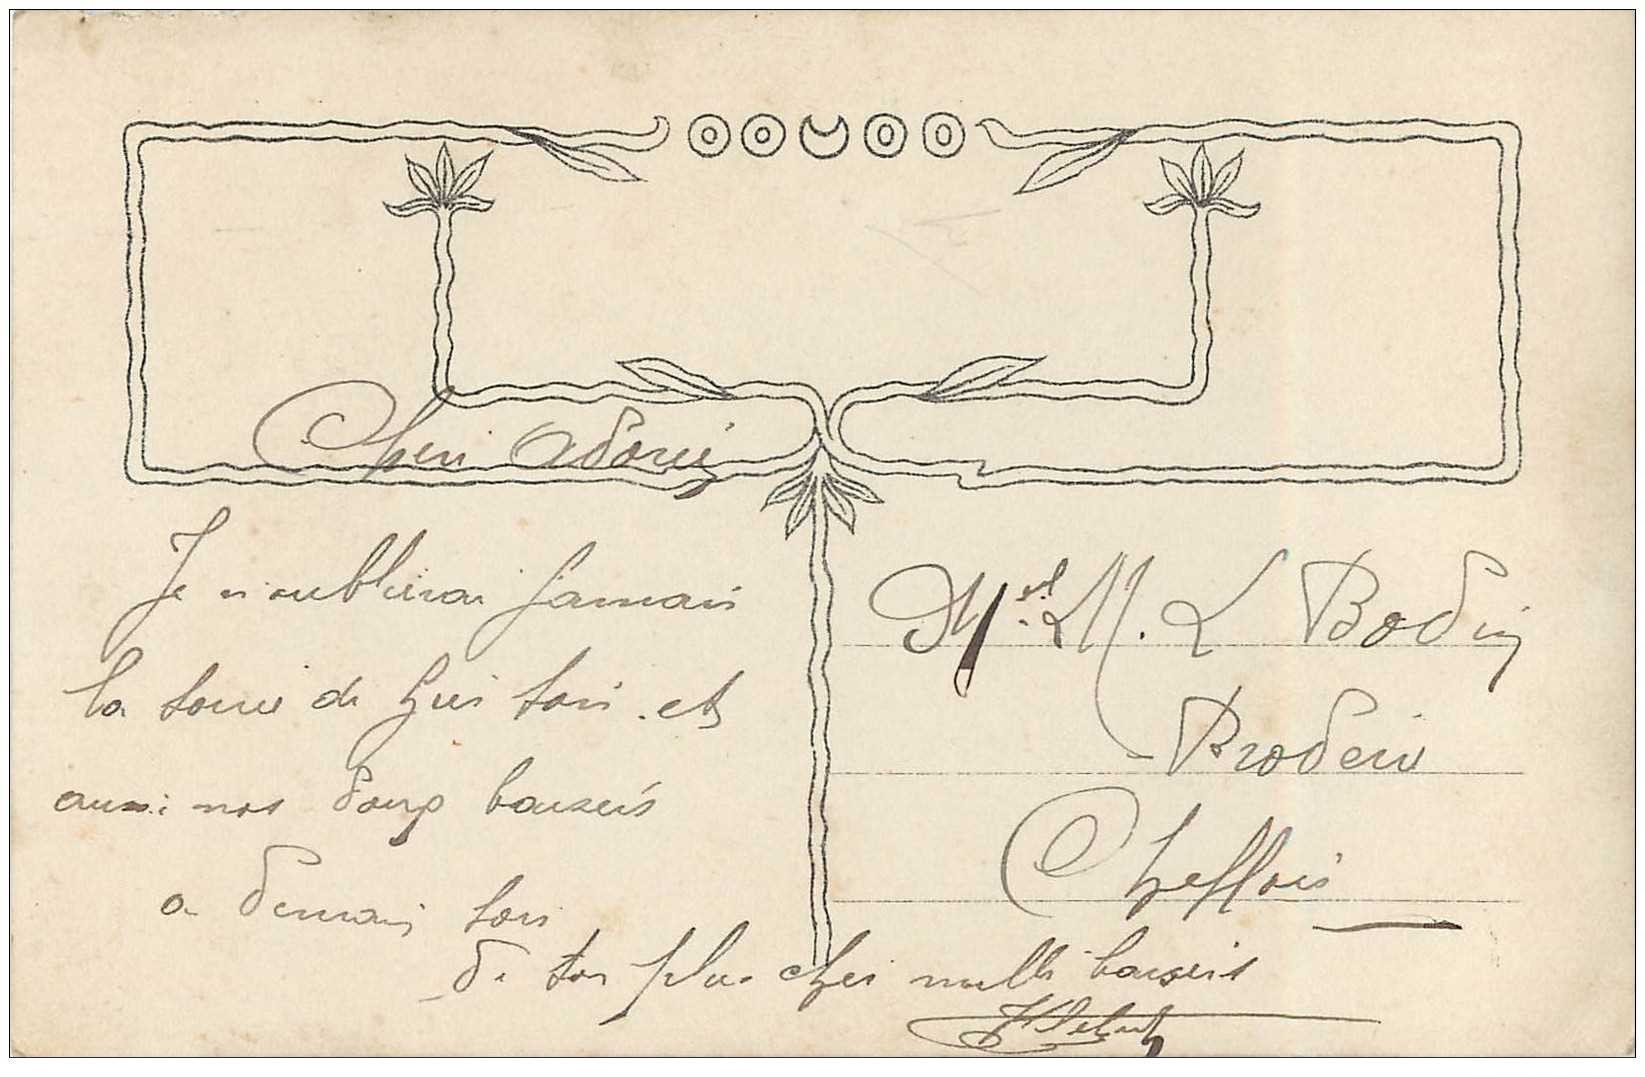 Cheri Adorée
Je n'oublierai jamais
la soirée de et
aussi nos doux baisers
a demain soir
de ton plus cher mille baisers
Melle M. L Bodin
Brodeuse
Cheffois